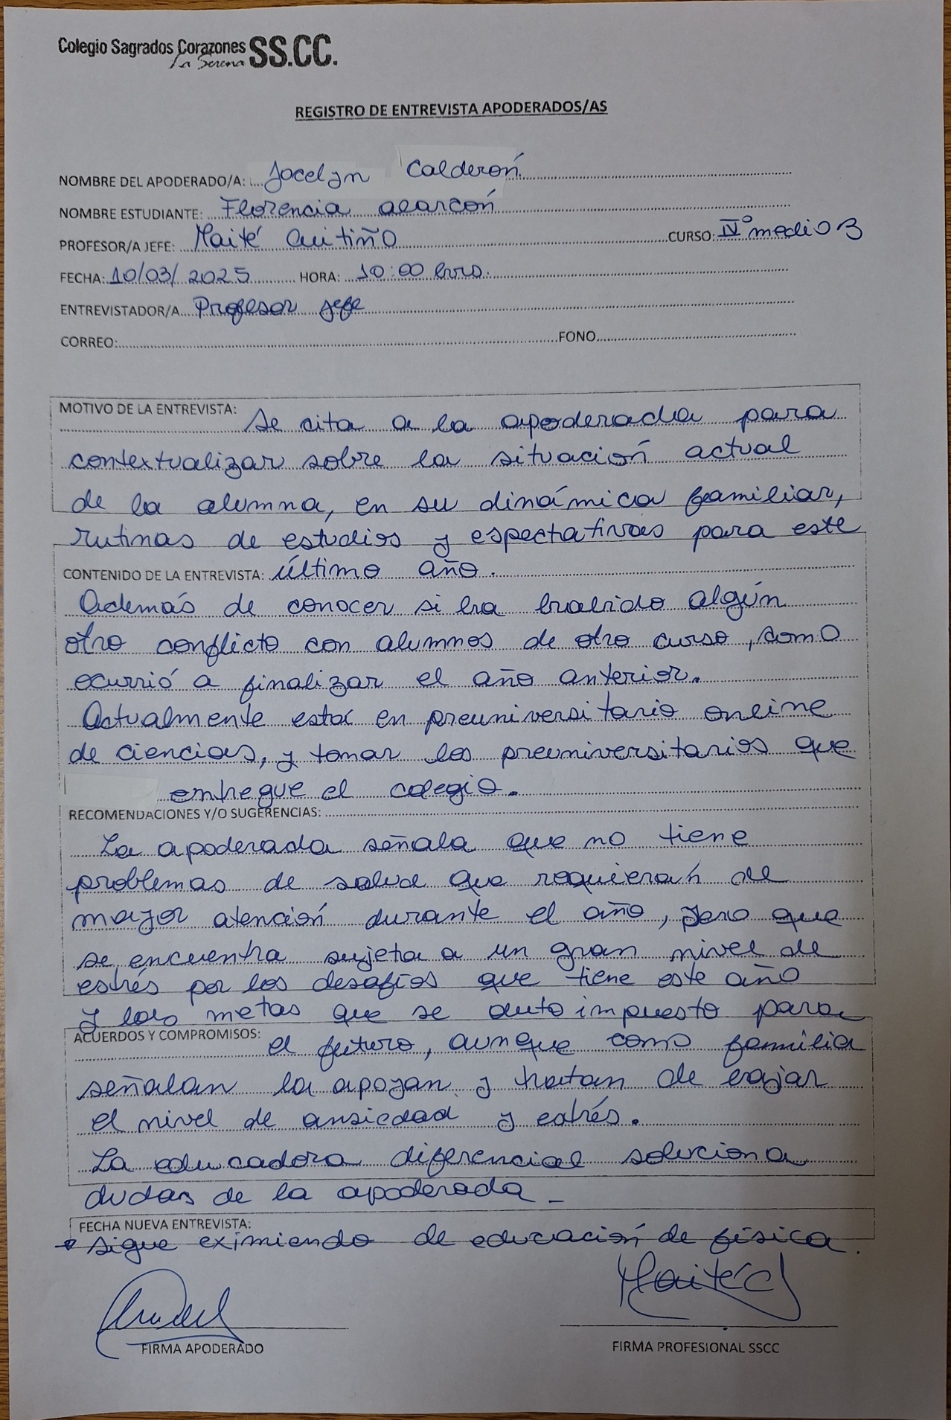 Colegio Sagrados Corazones SS.CC.
La Serena
REGISTRO DE ENTREVISTA APODERADOS/AS
NOMBRE DEL APODERADO/A: Jocelyn Calderón
NOMBRE ESTUDIANTE: Florencia Alarcón
PROFESOR/A JEFE: Maité Cuitiño CURSO: IVº medio B
FECHA: 10/03/2025 HORA: 10:00 hrs.
ENTREVISTADOR/A Profesor jefe
CORREO: FONO
MOTIVO DE LA ENTREVISTA: Se cita a la apoderada para
contextualizar sobre la situación actual
de la alumna, en su dinámica familiar,
rutinas de estudios y espectativas para este
CONTENIDO DE LA ENTREVISTA: último año.
Además de conocer si ha habido algún
otro conflicto con alumnos de otro curso, como
ocurrió a finalizar el año anterior.
Actualmente está en preuniversitario online
de ciencias, y tomar los preuniversitarios que
entregue el colegio.
RECOMENDACIONES Y/O SUGERENCIAS:
La apoderada señala que no tiene
problemas de salud que requieran de
mayor atención durante el año, pero que
se encuentra sujeta a un gran nivel de
estrés por los desafíos que tiene este año
y las metas que se auto impuesto para
ACUERDOS Y COMPROMISOS: el futuro, aunque como familia
señalan la apoyan y tratan de bajar
el nivel de ansiedad y estrés.
La educadora diferencial soluciona
dudas de la apoderada_
FECHA NUEVA ENTREVISTA:
* Sigue eximiendo de educación de física.
Maité C
FIRMA APODERADO FIRMA PROFESIONAL SSCC